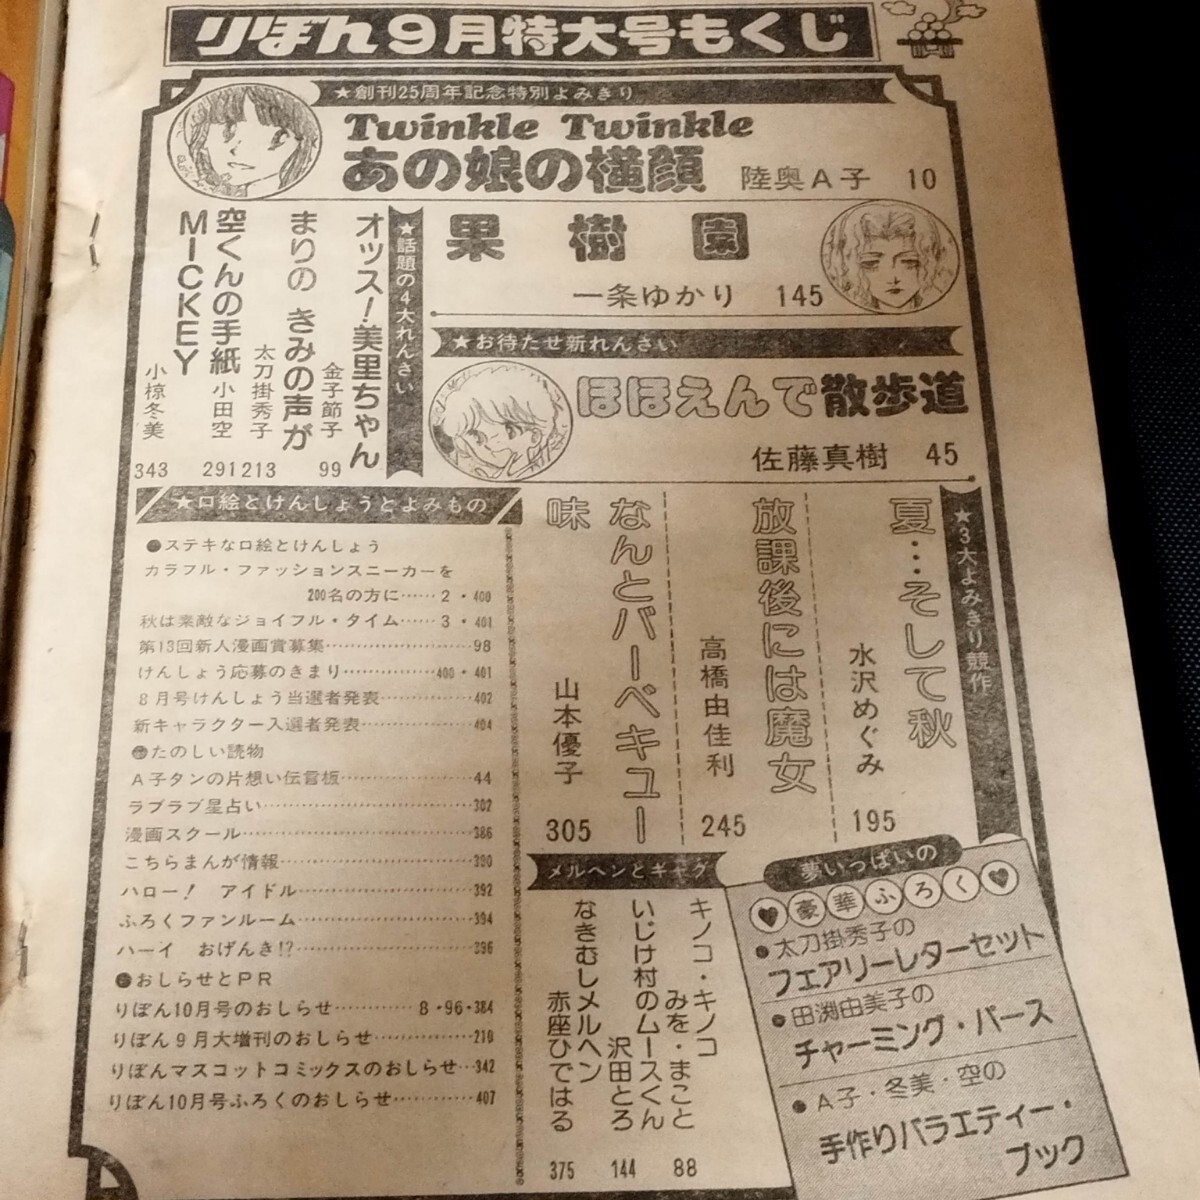 りぼん9月特大号もくじ
★創刊25周年記念特別よみきり
Twinkle Twinkle
あの娘の横顔 陸奥A子 10
果樹園
一条ゆかり 145
★お待たせ新れんさい
ほほえんで散歩道
佐藤真樹 45
★話題の4大れんさい
オッス!美里ちゃん
金子節子
99
まりの きみの声が
太刀掛秀子
213
空くんの手紙
小田空
291
MICKEY
小椋冬美
343
★3大よみきり競作
夏…そして秋
水沢めぐみ
195
放課後には魔女
高橋由佳利
245
なんとバーベキュー
味
山本優子
305
★口絵とけんしょうとよみもの
●ステキな口絵とけんしょう
カラフル・ファッションスニーカーを
200名の方に……2・400
秋は素敵なジョイフル・タイム……3・401
第13回新人漫画賞募集……98
けんしょう応募のきまり……400・401
8月号けんしょう当選者発表……402
新キャラクター入選者発表……404
●たのしい読物
A子タンの片想い伝言板……44
ラブラブ星占い……302
漫画スクール……386
こちらまんが情報……390
ハロー! アイドル……392
ふろくファンルーム……394
ハーイ おげんき!?……396
●おしらせとPR
りぼん10月号のおしらせ……8・96・384
りぼん9月大増刊のおしらせ……210
りぼんマスコットコミックスのおしらせ…342
りぼん10月号ふろくのおしらせ……407
メルヘンとギャグ
キノコ・キノコ
みを・まこと
88
いじけ村のムースくん
沢田とろ
144
なきむしメルヘン
赤座ひではる
375
夢いっぱいの
♥豪華ふろく♥
●太刀掛秀子の
フェアリーレターセット
●田渕由美子の
チャーミング・パース
●A子・冬美・空の
手作りバラエティー・
ブック